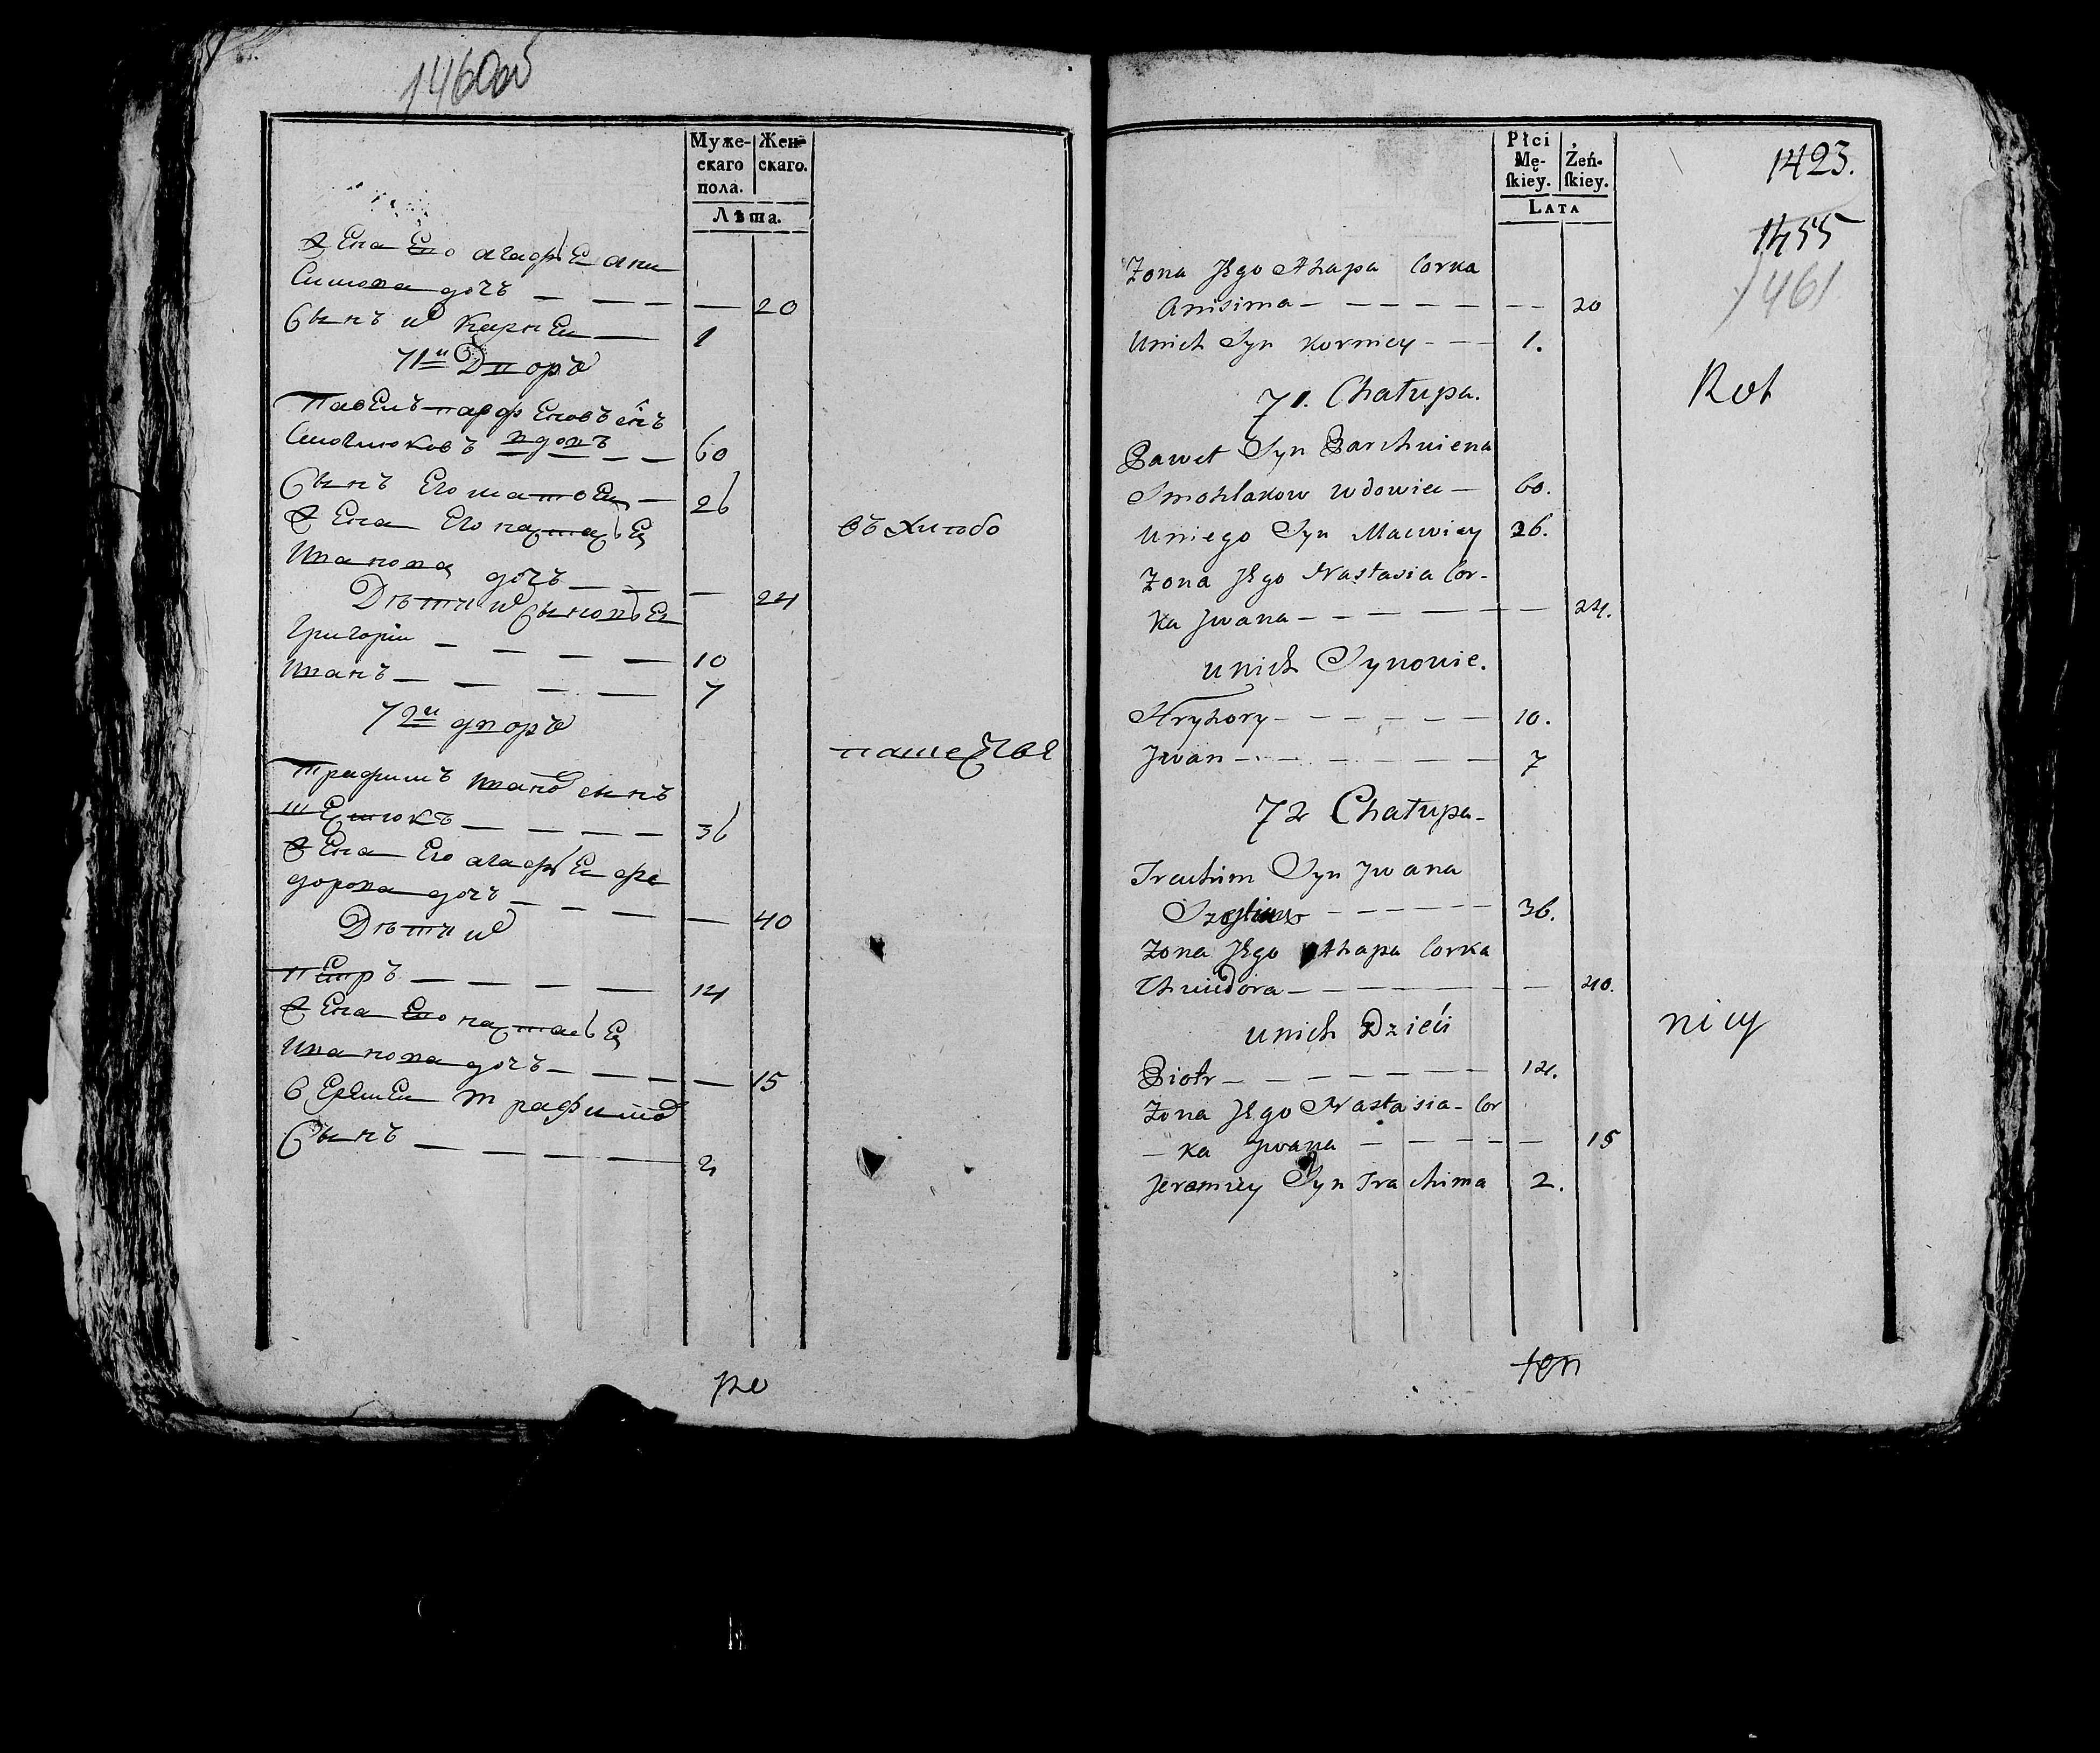 1460об
Муже-
скаго
пола.
Жен-
скаго.
Лѣта.
Жена Его агафѣЕ ани
Симова дочь — — — — 20
Сынъ и͏хъ КарнЕи — 1
71й Дворъ
ПавЕлъ парфЕновъ сн͏ъ
вдовъ — — 60
Сынъ Его матвЕи — 26
Жена Его настасѣЕ
Иванова дочь — — — 24
Дѣти ихъ СыновѣЕ
Григорiи — — — — 10
Иванъ — — — — 7
72й дворъ
Трафимъ Иванов сынъ
— — — — 36
Жена Его агафѣЕ фе
дорова дочь — — — — 40
Дѣти их
пЕтръ — — — — 14
Жена Его настасѣЕ
Иванова дочь — — — — 15
ЕрЕмЕи Трафимов
Сынъ — — — — 2
Płci
Mę-
ſkiey.
Żeń-
ſkiey.
Lata
1423.
1455
1461
Zona Jego Ahapa Corka
Anisima — — — — — — 20
Unich Syn Korniey - - - 1.
71. Chałupa.
Rot
Paweł Syn Parchwiena
Smohlakow wdowiec — 60.
Uniego Syn Macwiey 26.
Zona Jego Nastasia Cor-
ka Jwana — — — — — — 24.
unich Synowie.
Hryhory - — — — — 10.
Jwan — — — — — 7
72 Chałupa -
Trachim Syn Jwana
— — — — — 36.
Zona Jego Ahapa Corka
Chwiedora — — — — — — 40.
unich Dzieći
nicy
Piotr — — — — — — 14.
Zona Jego Nastasia - Cor
— ka Jwana — — — — — 15
Jeremiey Syn Trachima 2.